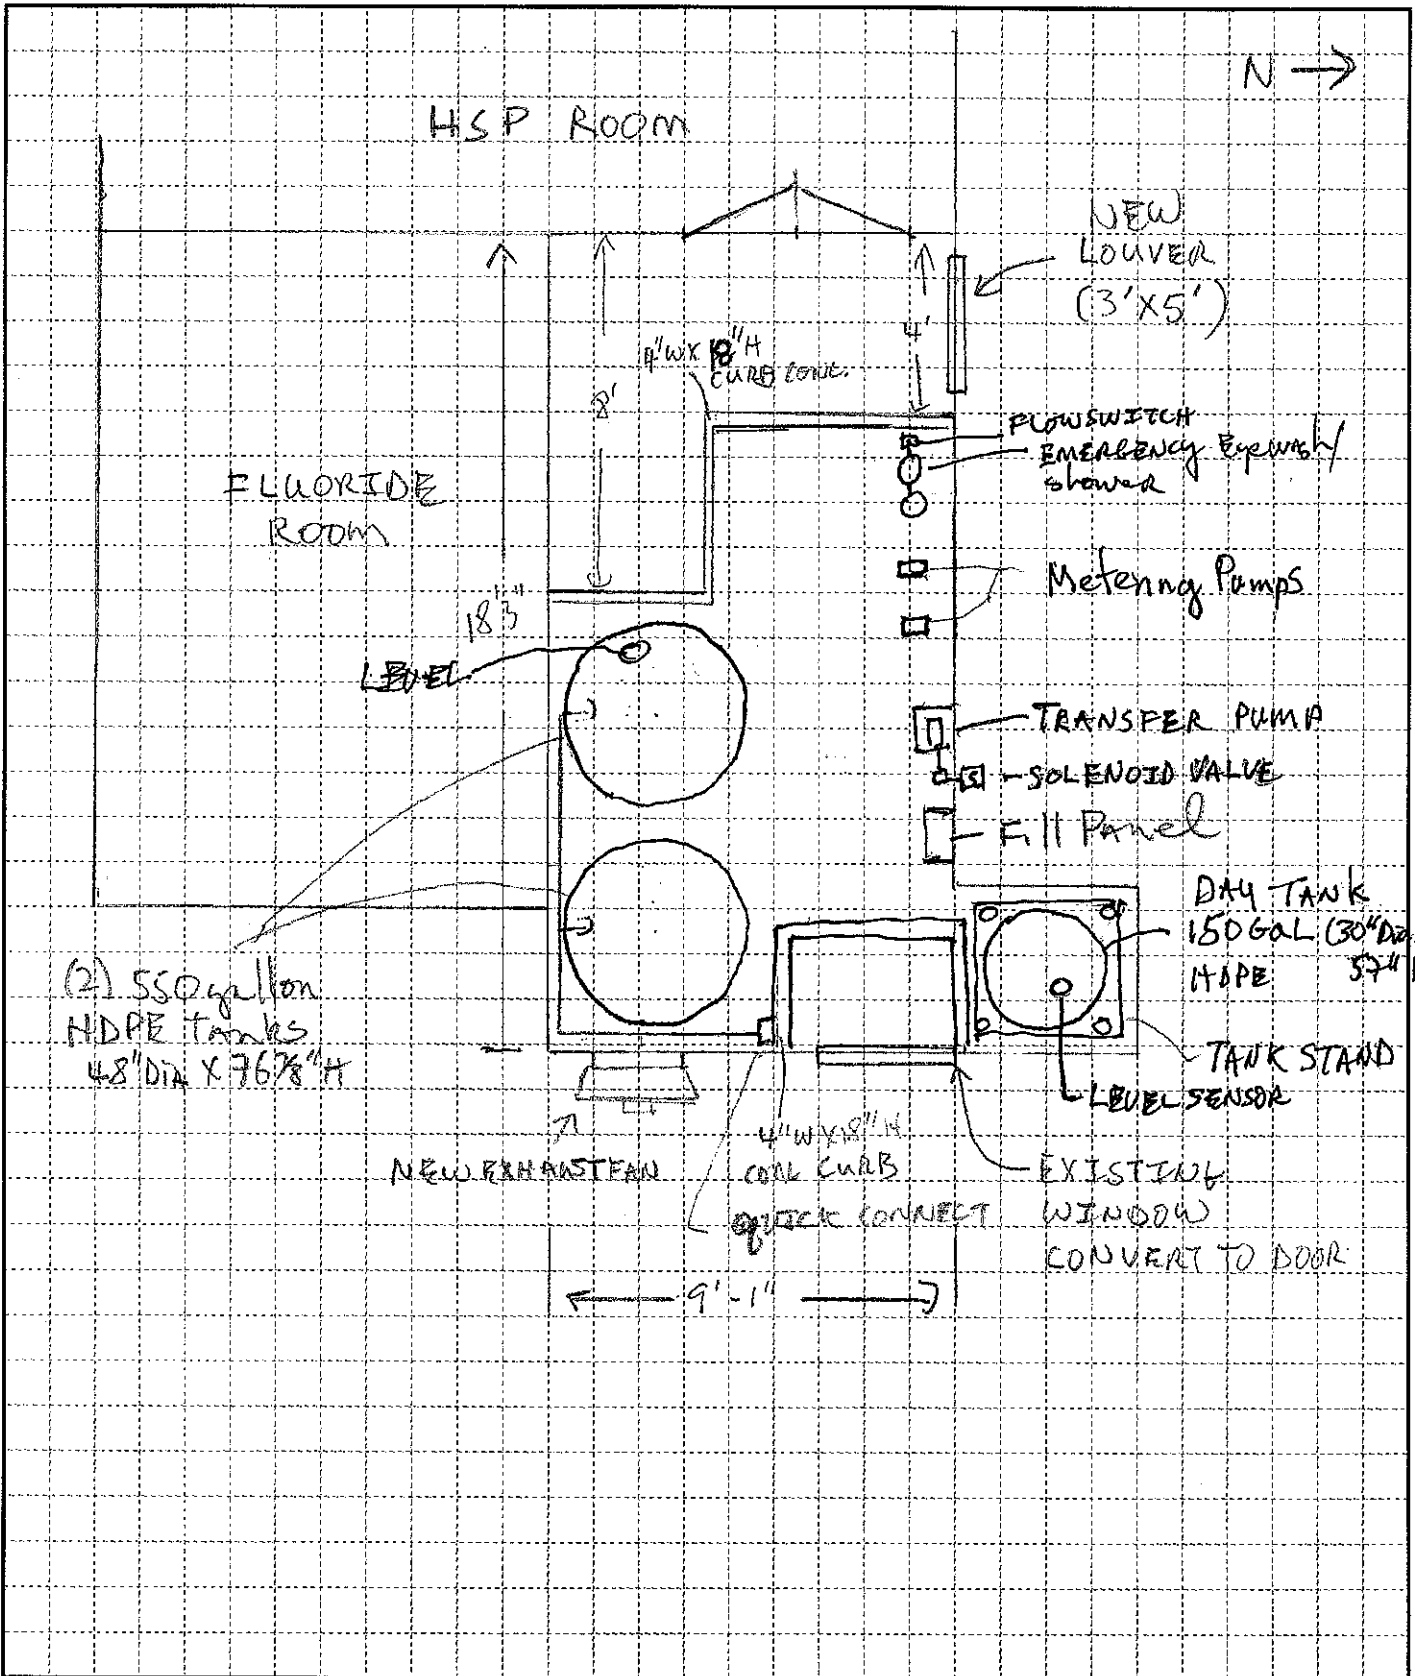 N →
HSP ROOM
NEW
LOUVER
(3'X5')
4'
4"W X 18"H
CURB CONC.
8'
FLOWSWITCH
EMERGENCY Eyewash/
shower
FLUORIDE
ROOM
Metering Pumps
18'3"
LEVEL
TRANSFER PUMP
S
SOLENOID VALVE
Fill Panel
DAY TANK
150 GAL (30"Dia
HDPE 57"
(2) 550 gallon
HDPE Tanks
48"Dia X 76 7/8"H
TANK STAND
LEVEL SENSOR
4"W X 18"H
CONC CURB
NEW EXHAUST FAN
QUICK CONNECT
EXISTING
WINDOW
CONVERT TO DOOR
9'-1"